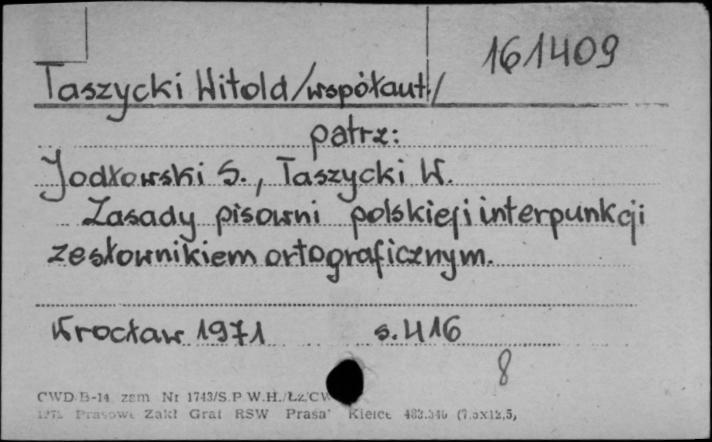 161409
Taszycki Witold /współaut./
patrz:
Jodłowski S., Taszycki W.
Zasady pisowni polskiej i interpunkcji
ze słownikiem ortograficznym.
Wrocław 1971 s. 416
8
CWD B-14 zam Nr 1743/S.P.W.H./Łz/CW
1972 Prasowe Zakł Graf RSW "Prasa" Kielce